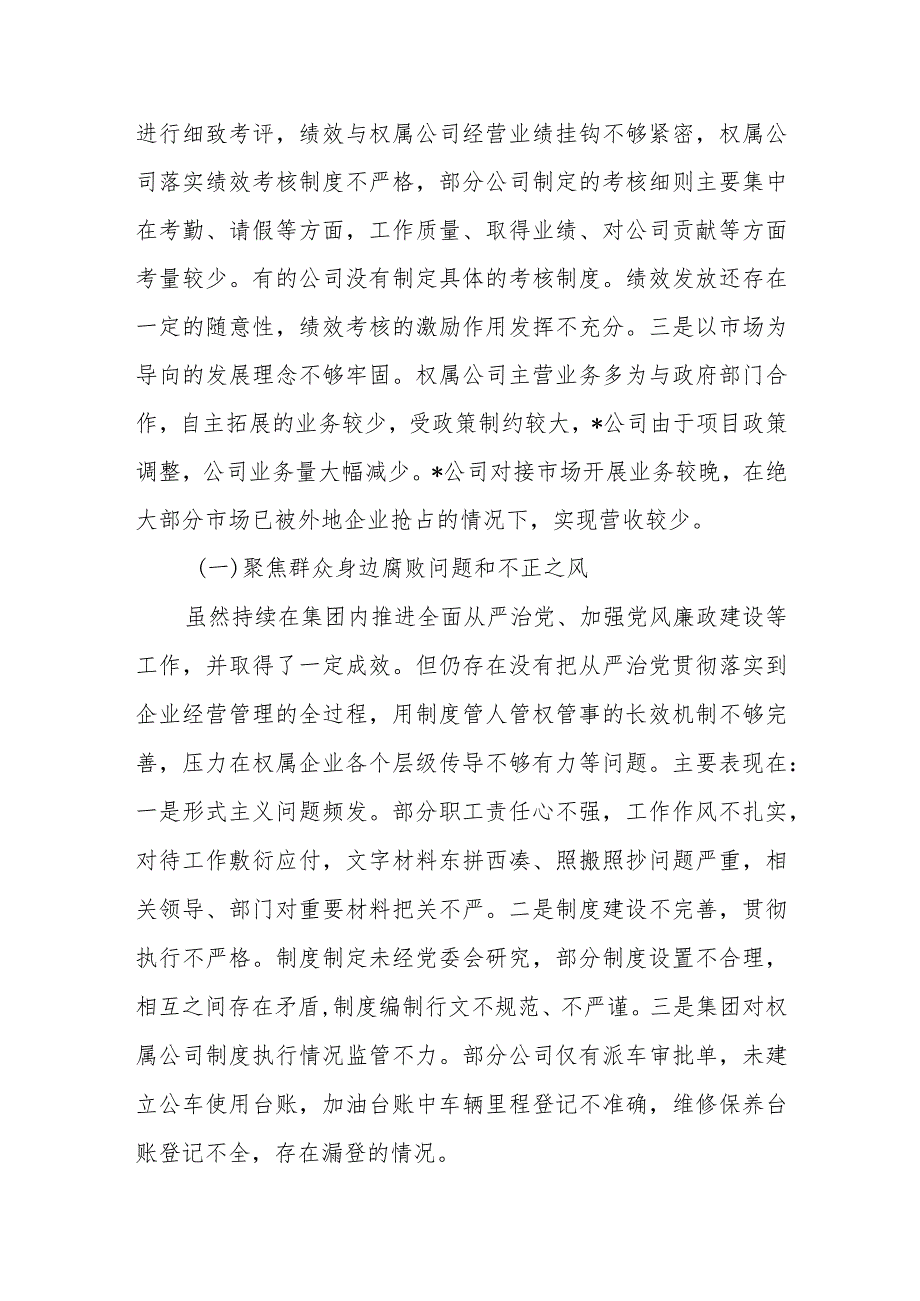 进行细致考评，绩效与权属公司经营业绩挂钩不够紧密，权属公
司落实绩效考核制度不严格，部分公司制定的考核细则主要集中
在考勤、请假等方面，工作质量、取得业绩、对公司贡献等方面
考量较少。有的公司没有制定具体的考核制度。绩效发放还存在
一定的随意性，绩效考核的激励作用发挥不充分。三是以市场为
导向的发展理念不够牢固。权属公司主营业务多为与政府部门合
作，自主拓展的业务较少，受政策制约较大，*公司由于项目政策
调整，公司业务量大幅减少。*公司对接市场开展业务较晚，在绝
大部分市场已被外地企业抢占的情况下，实现营收较少。
(一)聚焦群众身边腐败问题和不正之风
虽然持续在集团内推进全面从严治党、加强党风廉政建设等
工作，并取得了一定成效。但仍存在没有把从严治党贯彻落实到
企业经营管理的全过程，用制度管人管权管事的长效机制不够完
善，压力在权属企业各个层级传导不够有力等问题。主要表现在：
一是形式主义问题频发。部分职工责任心不强，工作作风不扎实，
对待工作敷衍应付，文字材料东拼西凑、照搬照抄问题严重，相
关领导、部门对重要材料把关不严。二是制度建设不完善，贯彻
执行不严格。制度制定未经党委会研究，部分制度设置不合理，
相互之间存在矛盾,制度编制行文不规范、不严谨。三是集团对权
属公司制度执行情况监管不力。部分公司仅有派车审批单，未建
立公车使用台账，加油台账中车辆里程登记不准确，维修保养台
账登记不全，存在漏登的情况。